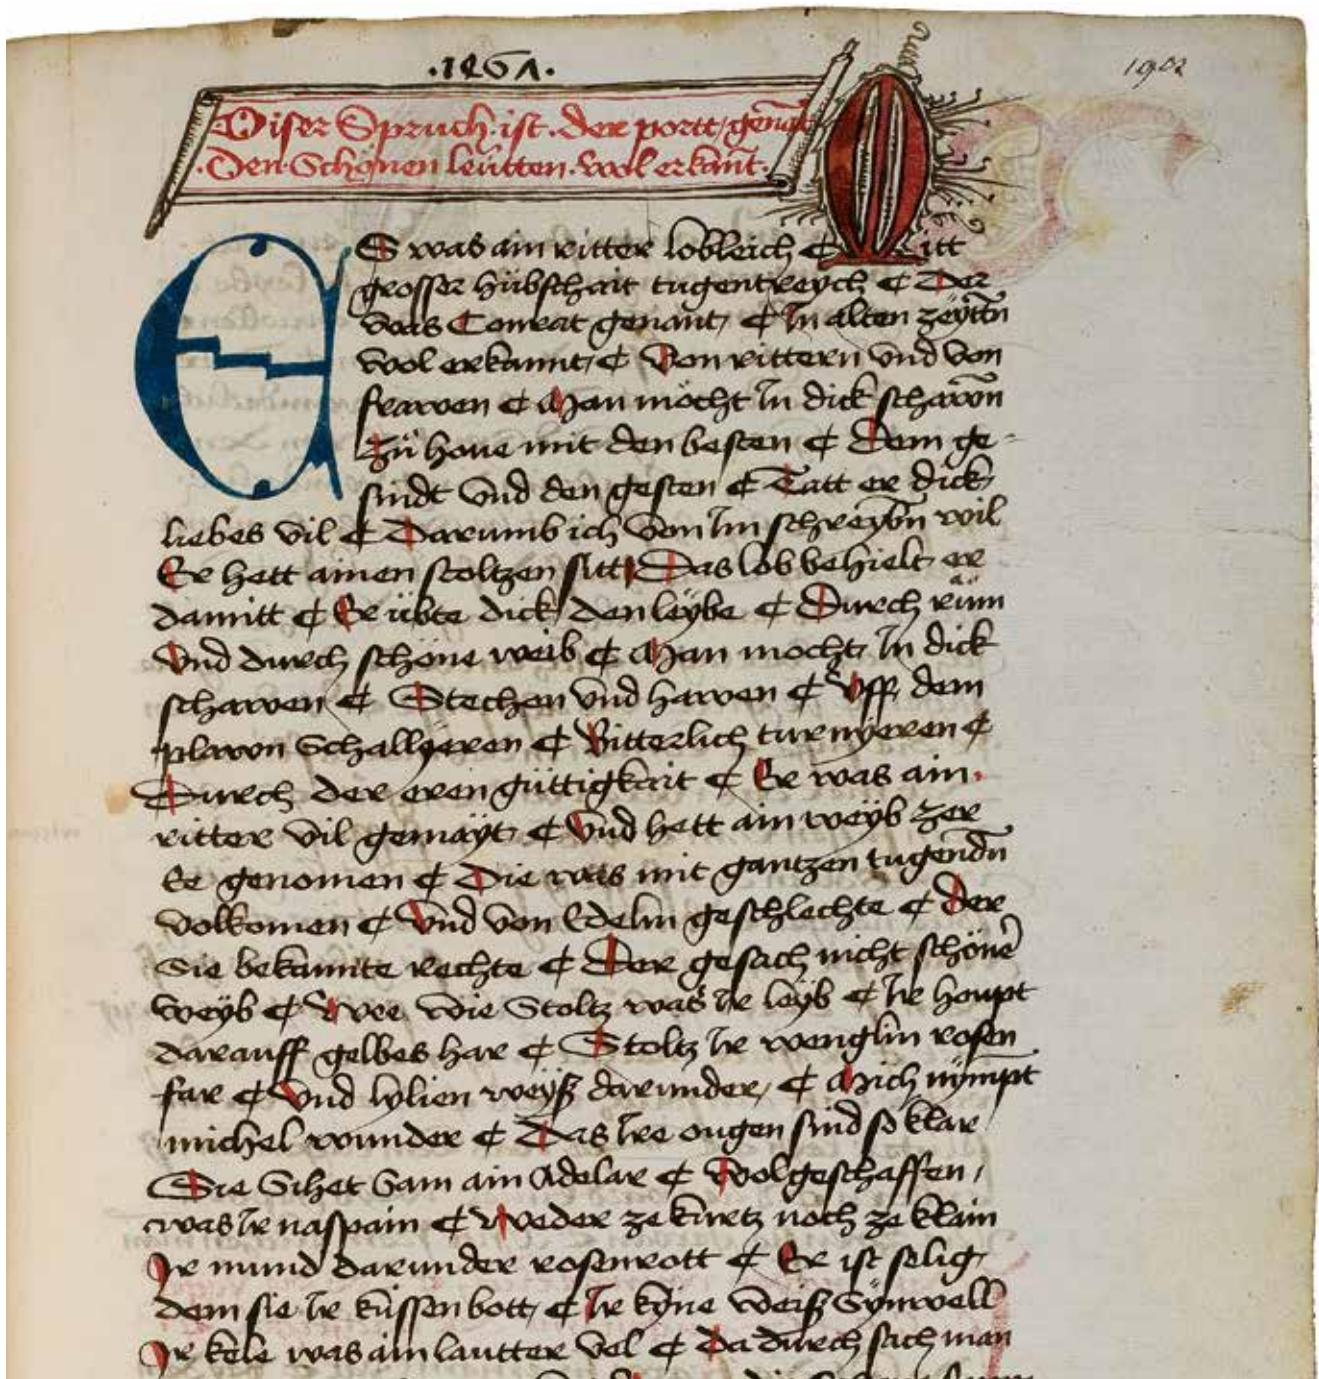 ·1461·
190
Diser Spruch · ist · der portt genāt
· Den · Schönen leütten · wol erkant ·
ES was ain ritter lobleich ¶ Mitt
grosser hübschait tugentreych ¶ Der
was Conrat genant ¶ In alten zeyttn̄
wol erkannt ¶ Von rittern vnd von
frawen ¶ Man möcht In dick schawn̄
Zů houe mit den besten ¶ Dem ge-
sindt vnd den gesten ¶ Tatt er dick
liebes vil ¶ Darumb ich von Im schreybn̄ wil
Er hett ainen stoltzen sitt ¶ Das lob behielt er
damitt ¶ Er übte dick den leybe ¶ Durch rům
Vnd durch schöne weib ¶ Man mocht In dick
schawen ¶ Stechen vnd hawen ¶ Vff dem
plawn Schallyeren ¶ Ritterlich turnyeren ¶
Durch der eren güttigkait ¶ Er was ain
ritter vil gemayt ¶ Vnd hett ain weyb zer
Ee genomen ¶ Die was mit gantzen tugendn̄
volkomen ¶ Vnd von Edelm geschlechte ¶ Der
Sie bekannte rechte ¶ Der gesach nicht schöner
weyb ¶ Awee wie Stoltz was Ir leyb ¶ Ir houpt
darauff gelbes har ¶ Stoltz Ir wenglin rosen
far ¶ Vnd lylien weyß darunder ¶ Mich nympt
michel wunder ¶ Das Ire ougen sind so klar
Sie Sihet Sam ain Adelar ¶ Wolgeschaffen
was Ir naspain ¶ Weder ze kurtz noch ze klain
Ir mund darunder rosenrott ¶ Er ist selig
dem sie Ir küssen bott ¶ Ir kyne weiß Synwell
Ir kele was ain lautter vel ¶ Da durch sach man